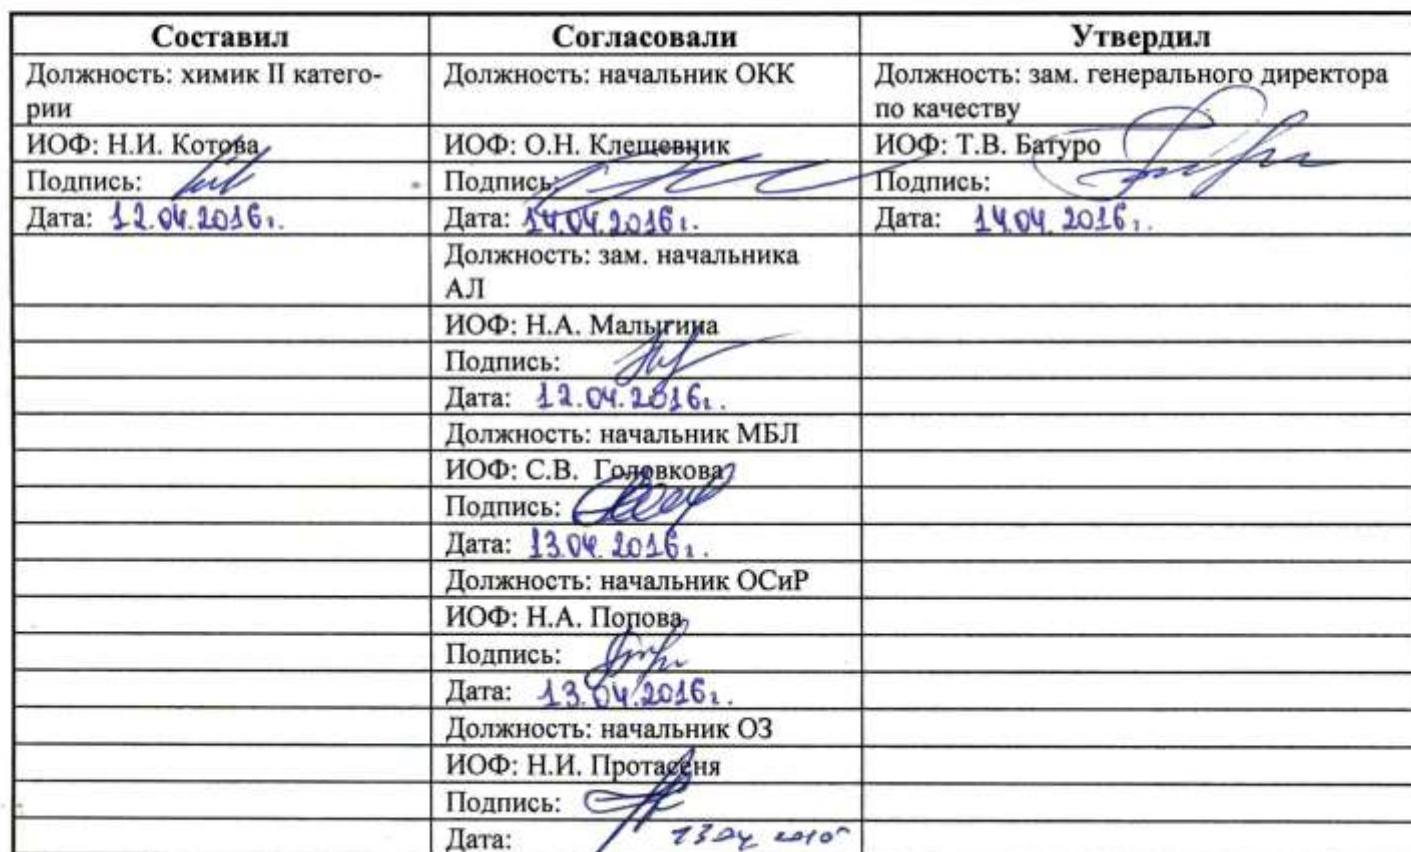 Составил Согласовали Утвердил
Должность: химик II катего- Должность: начальник ОКК Должность: зам. генерального директора
рии по качеству
ИОФ: Н.И. Котова ИОФ: О.Н. Клещевник ИОФ: Т.В. Батуро
Подпись: Подпись: Подпись:
Дата: 12.04.2016г. Дата: 14.04.2016г. Дата: 14.04.2016г.
Должность: зам. начальника
АЛ
ИОФ: Н.А. Малыгина
Подпись:
Дата: 12.04.2016г.
Должность: начальник МБЛ
ИОФ: С.В. Головкова
Подпись:
Дата: 13.04.2016г.
Должность: начальник ОСиР
ИОФ: Н.А. Попова
Подпись:
Дата: 13.04.2016г.
Должность: начальник ОЗ
ИОФ: Н.И. Протасеня
Подпись:
Дата: 13 04